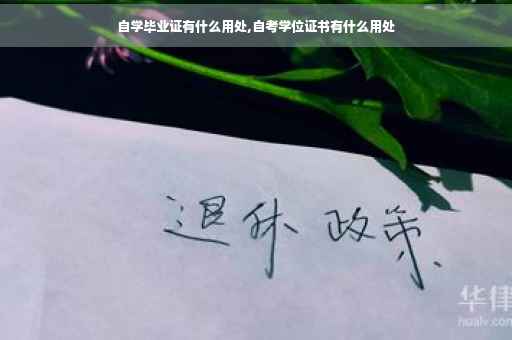 自学毕业证有什么用处,自考学位证书有什么用处
退休 政策
华律
hualv.com